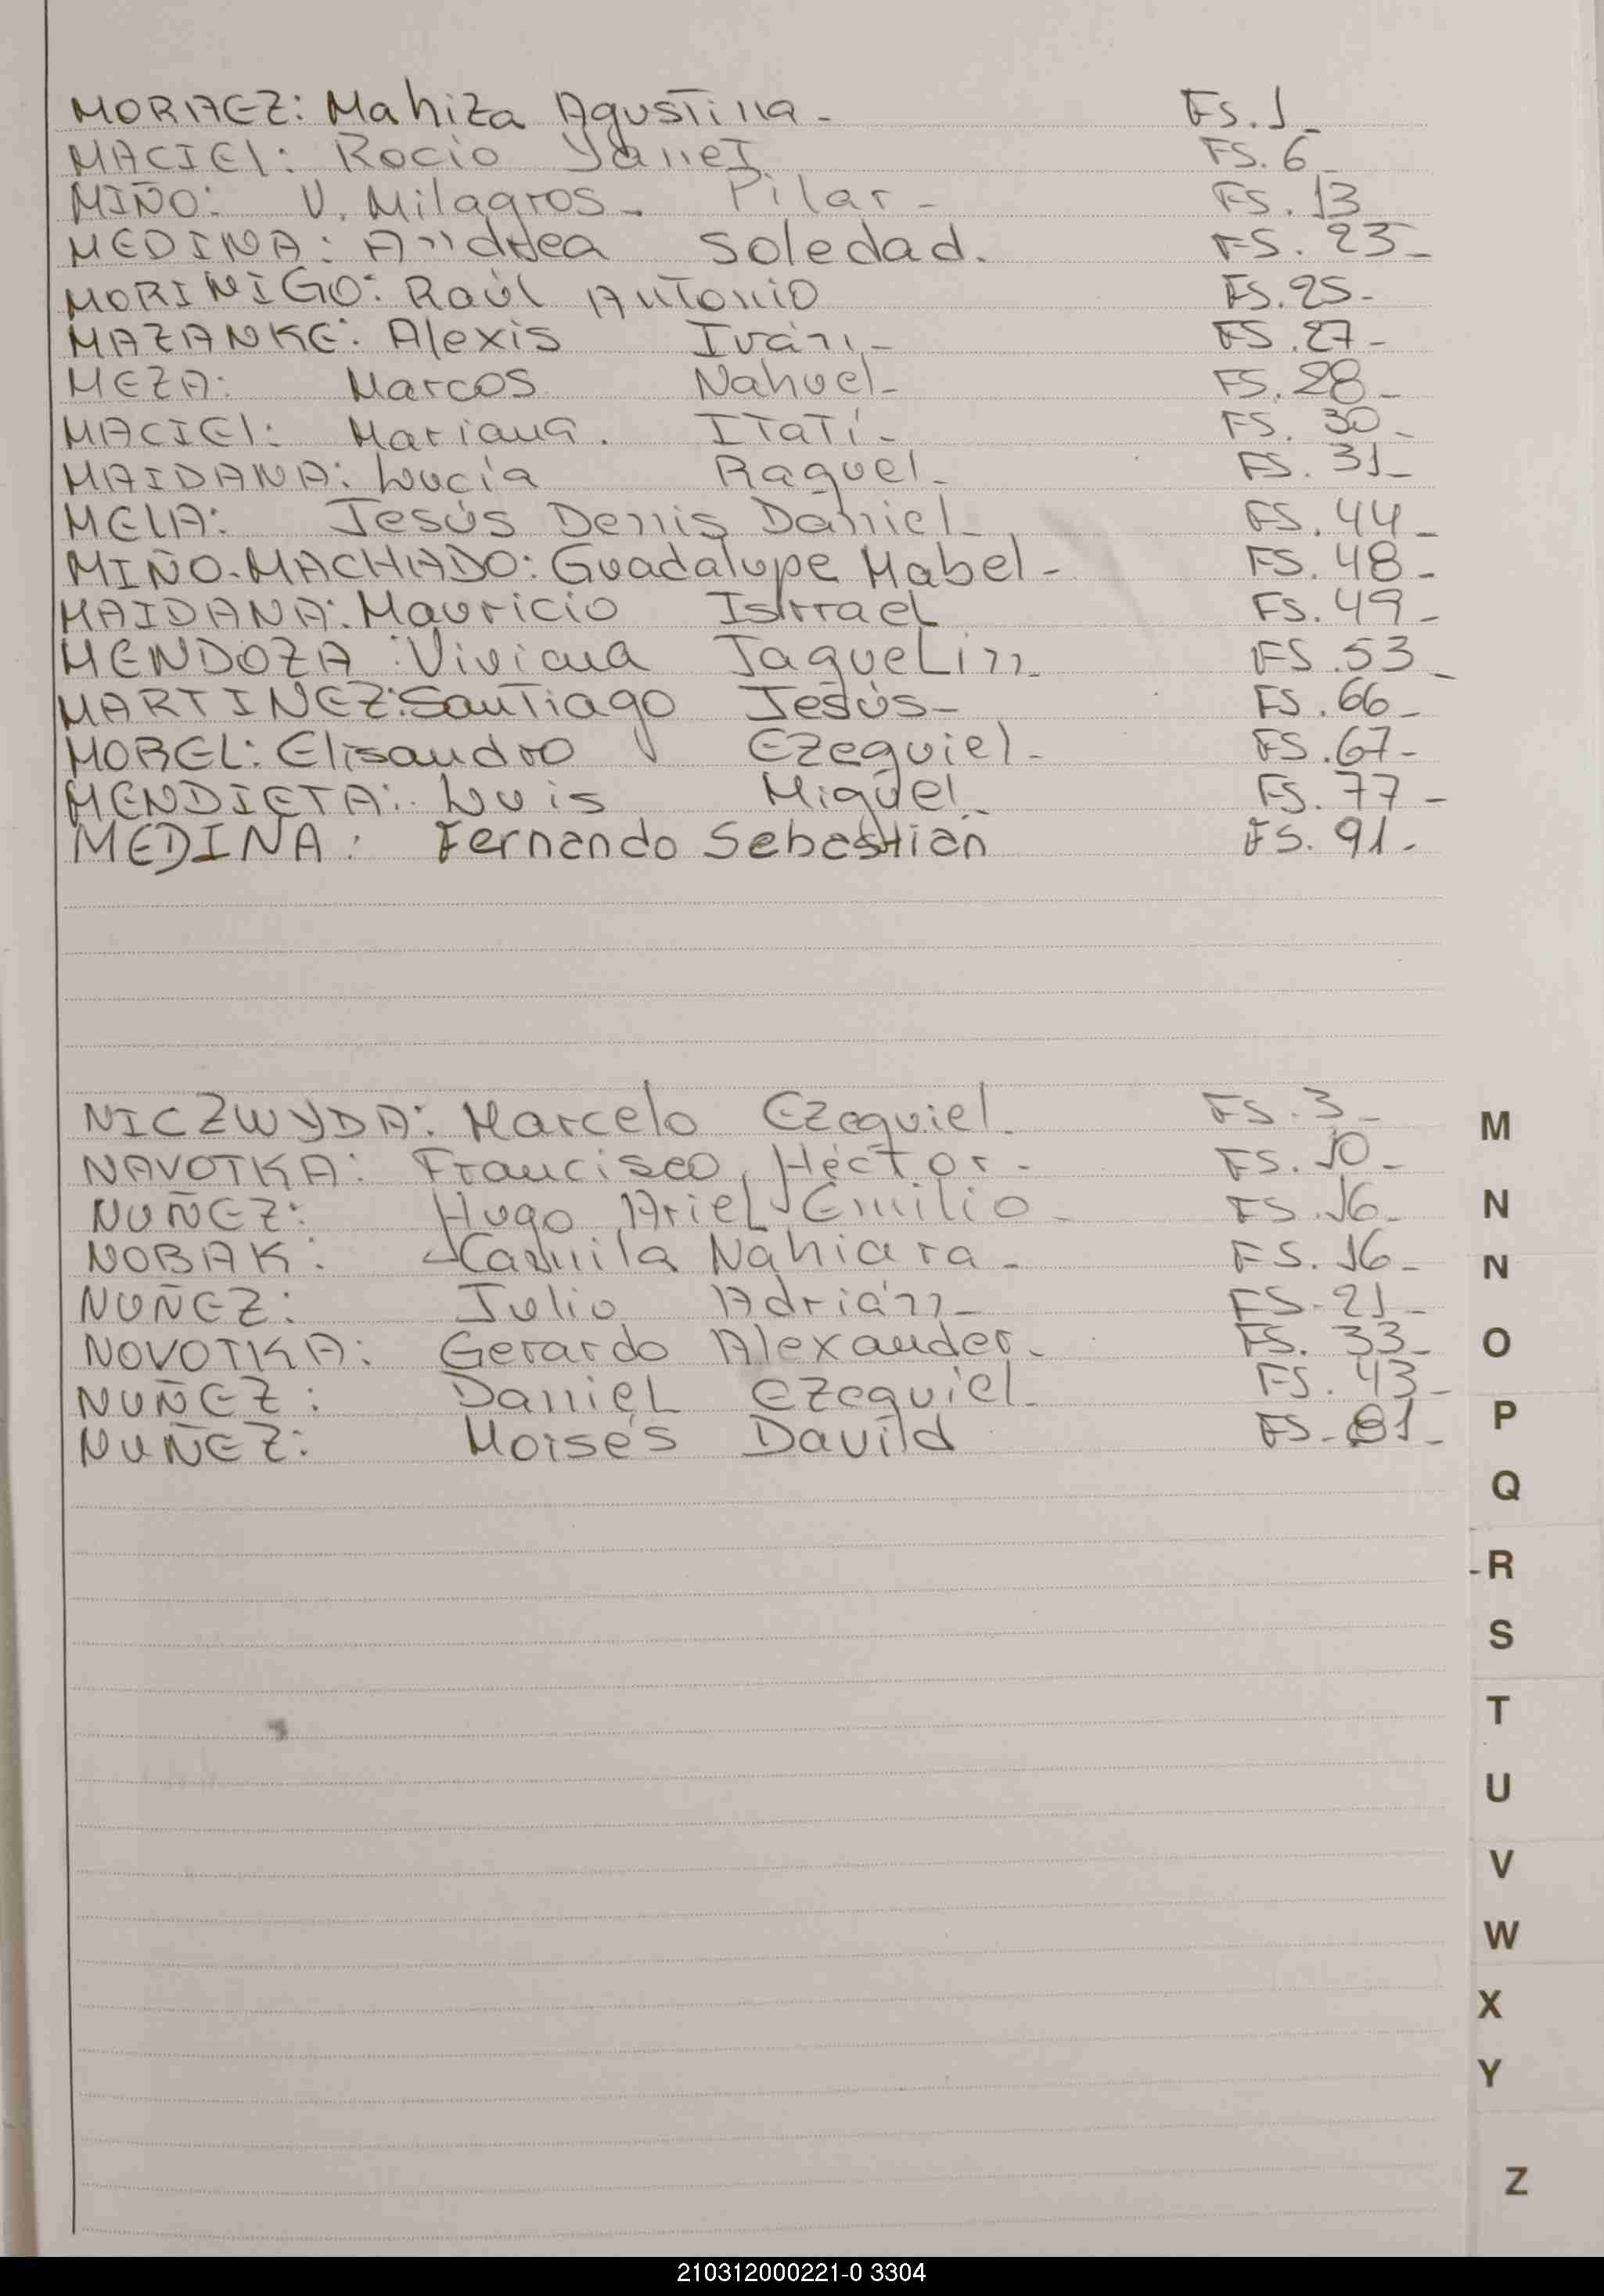 MORAEZ: Mahiza Agustina - FS. 1 -
MACIEL: Rocio Yanet FS. 6
MIÑO: V. Milagros - Pilar - FS. 13
MEDINA: Andrea Soledad. FS. 23 -
MORINIGO: Raúl Antonio FS. 25 -
MAZANKE: Alexis Iván - FS. 27 -
MEZA: Marcos Nahuel - FS. 28 -
MACIEL: Mariana. ITaTí - FS. 30 -
MAIDANA: Lucía Raquel - FS. 31 -
MELA: Jesús Denis Daniel - FS. 44 -
MIÑO-MACHADO: Guadalupe Mabel - FS. 48 -
MAIDANA: Mauricio Isrrael FS. 49 -
MENDOZA: Viviana Jaquelin - FS. 53 -
MARTINEZ: Santiago Jesús - FS. 66 -
MOREL: Elisandro Ezequiel - FS. 67 -
MENDIETA: Luis Miguel - FS. 77 -
MEDINA: Fernando Sebastián FS. 91 -
NICZWYDA: Marcelo Ezequiel - FS. 3 -
NAVOTKA: Francisco Héctor - FS. 10 -
NUÑEZ: Hugo Ariel Emilio - FS. 16 -
NOBAK: Camila Nahiara - FS. 16 -
NUÑEZ: Julio Adrián - FS. 21 -
NOVOTKA: Gerardo Alexander - FS. 33 -
NUÑEZ: Daniel Ezequiel - FS. 43 -
NUÑEZ: Moisés David FS. 81 -
M
N
N
O
P
Q
R
S
T
U
V
W
X
Y
Z
210312000221-0 3304